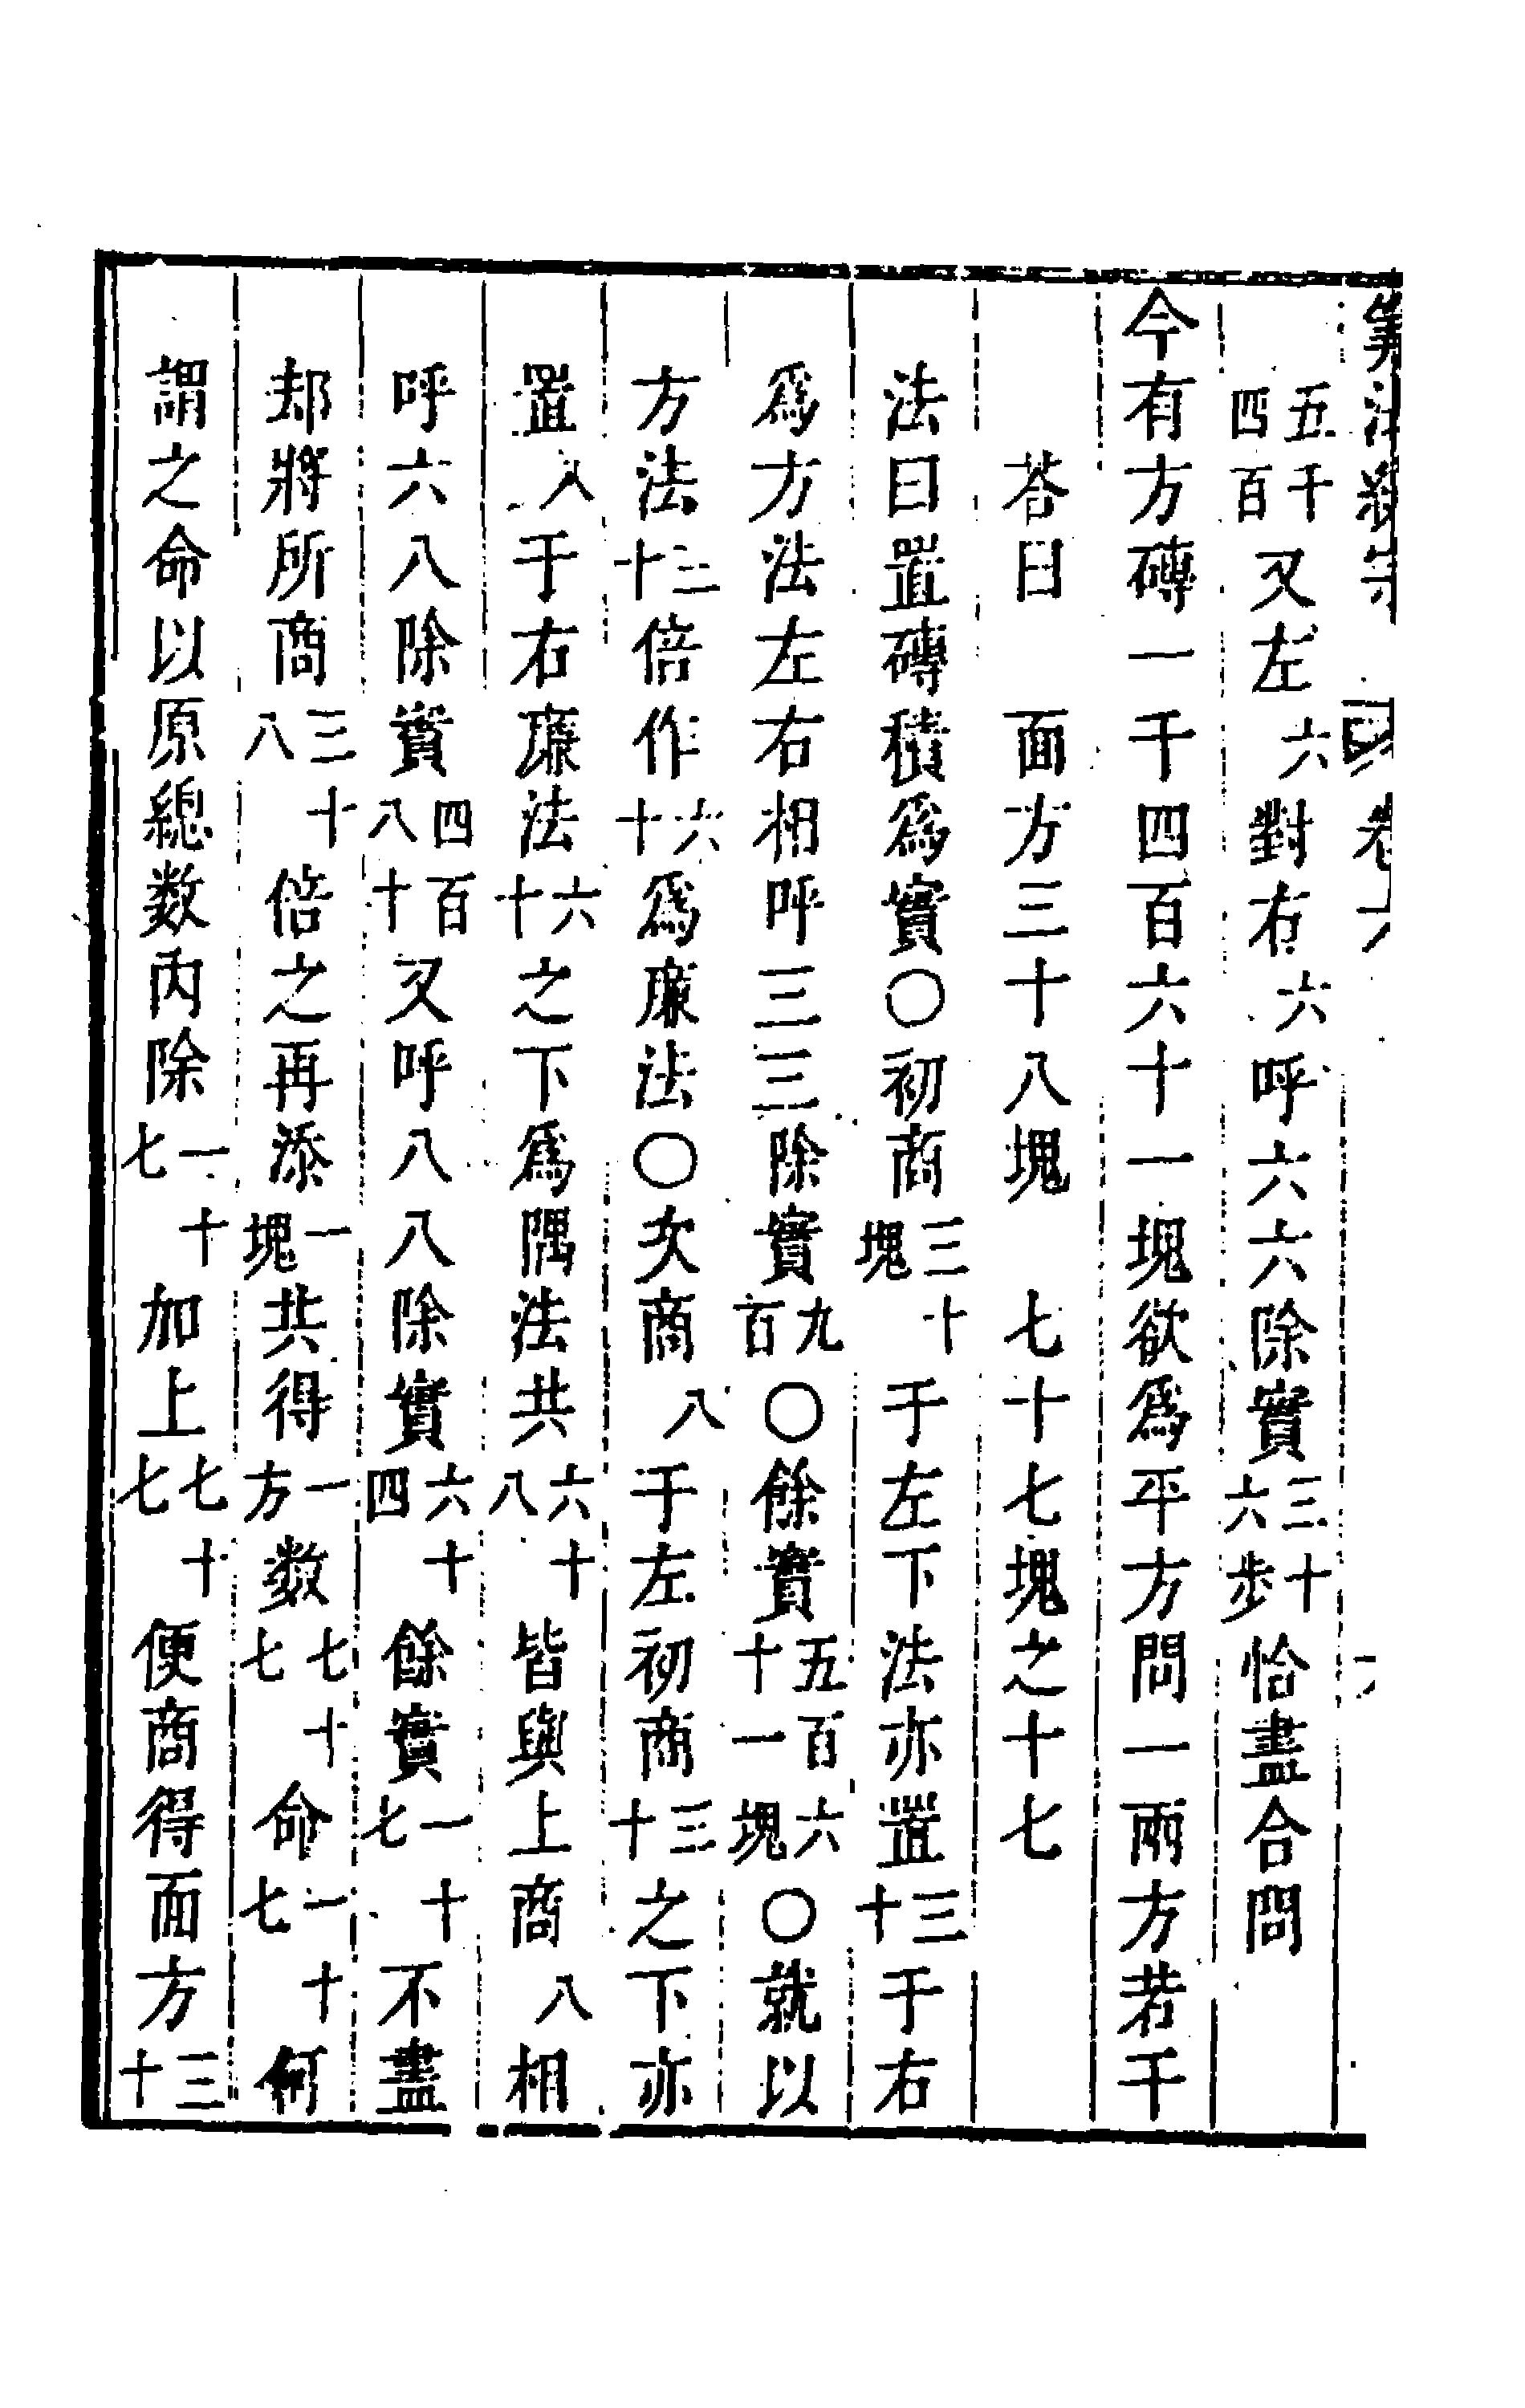 算法統宗 卷六
五千四百又左六對右六呼六六除實三十六步恰盡合問
今有方磚一千四百六十一塊欲爲平方問一面方若干
荅曰 面方三十八塊 七十七塊之十七
法曰置磚積爲實〇初商三十塊于左下法亦置三十于右
爲方法左右相呼三三除實九百〇餘實五百六十一塊〇就以
方法三十倍作六十爲廉法〇次商八于左初商三十之下亦
置八于右廉法六十之下爲隅法共六十八皆與上商八相
呼六八除實四百八十又呼八八除實六十四餘實一十七不盡
却將所商三十八倍之再添一塊共得一方數七十七命一十七何
謂之命以原總数内除一十七加上七十七便商得面方三十